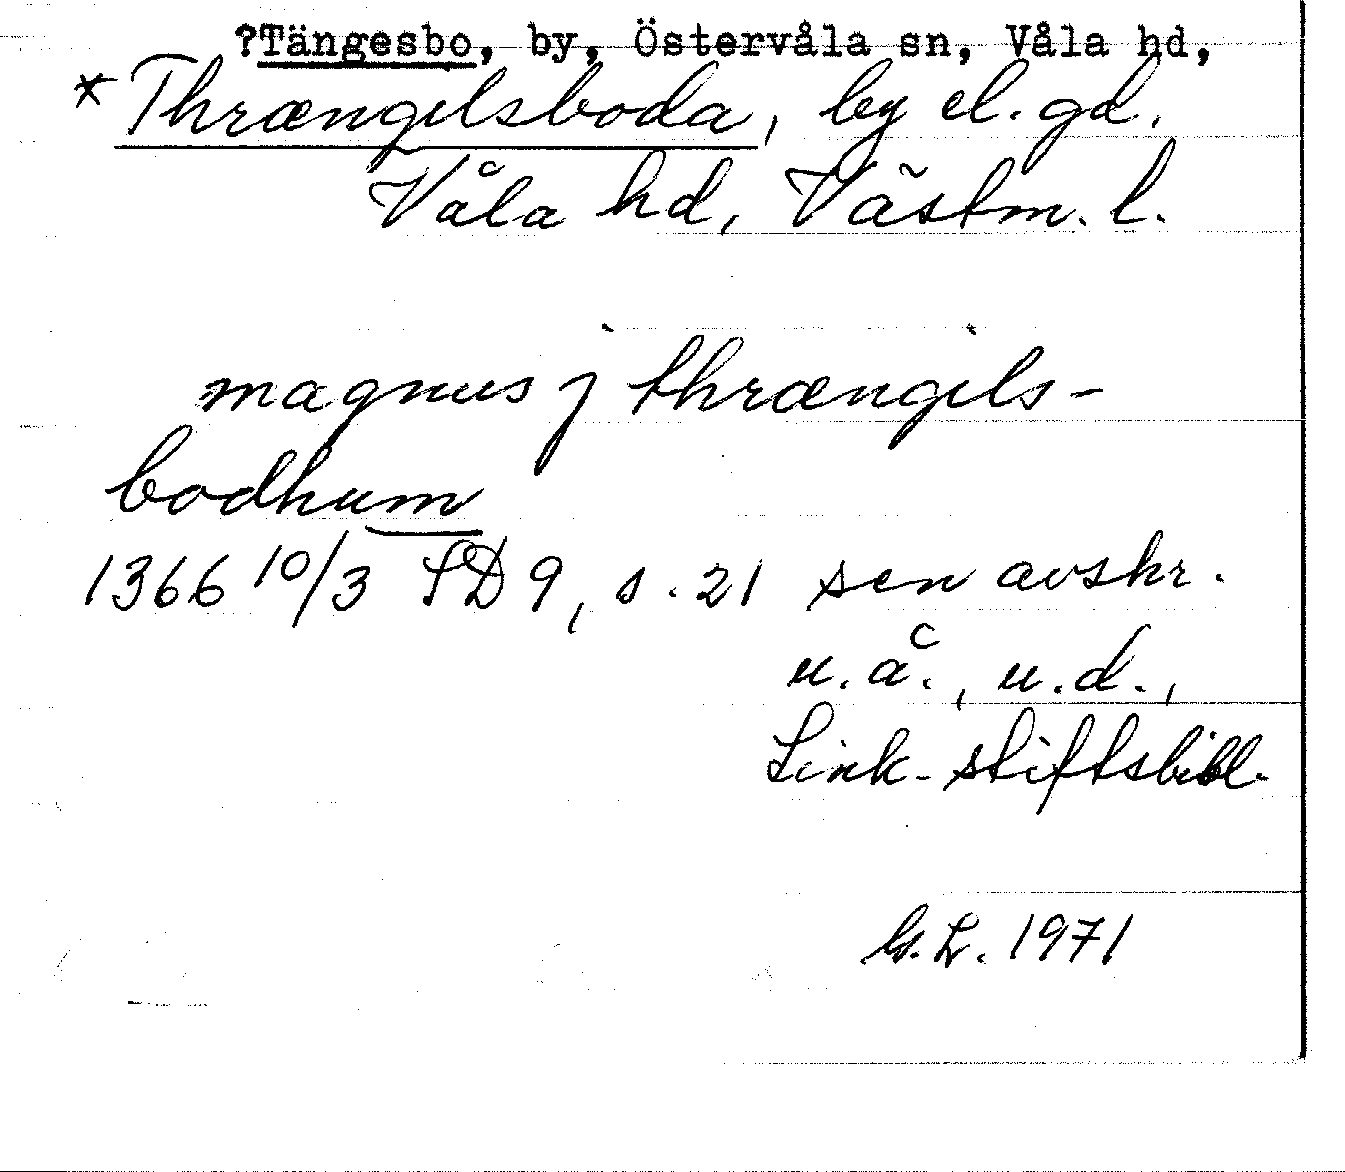 ?Tängesbo, by, Östervåla sn, Våla hd,
* Thrængilsboda, by el. gd.
Våla hd, Västm. l.
magnus j thrængils-
bodhum
1366 10/3 SD 9, s. 21 sen avskr.
u.å., u.d.,
Link. stiftsbibl.
G.L. 1971